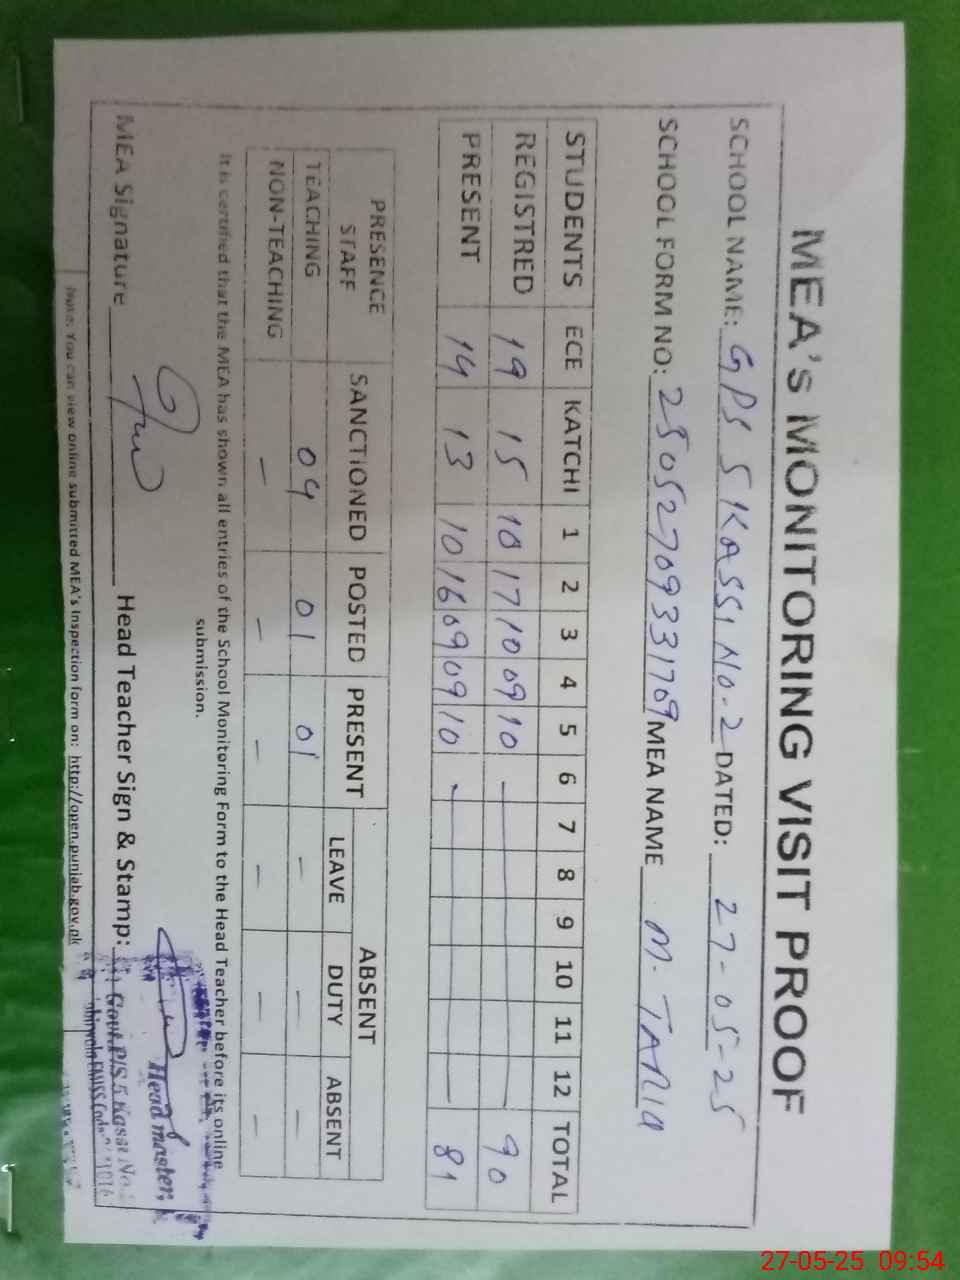 MEA's MONITORING VISIT PROOF
SCHOOL NAME: GPS 5 KASSI NO-2 DATED: 27-05-25
SCHOOL FORM NO: 25052709331709 MEA NAME M. TARIQ
STUDENTS ECE KATCHI 1 2 3 4 5 6 7 8 9 10 11 12 TOTAL
REGISTRED 19 15 10 17 10 09 10 - 90
PRESENT 14 13 10 16 09 09 10 - 81
PRESENCE STAFF SANCTIONED POSTED PRESENT ABSENT
LEAVE DUTY ABSENT
TEACHING 04 01 01 - - -
NON-TEACHING - - - - - -
It is certified that the MEA has shown all entries of the School Monitoring Form to the Head Teacher before its online
submission.
MEA Signature Head Teacher Sign & Stamp:
Head master,
Govt. P/S 5 Kassi No.
EMIS Code
Note: You can view online submitted MEA's Inspection form on: http://open.punjab.gov.pk
27-05-25 09:54